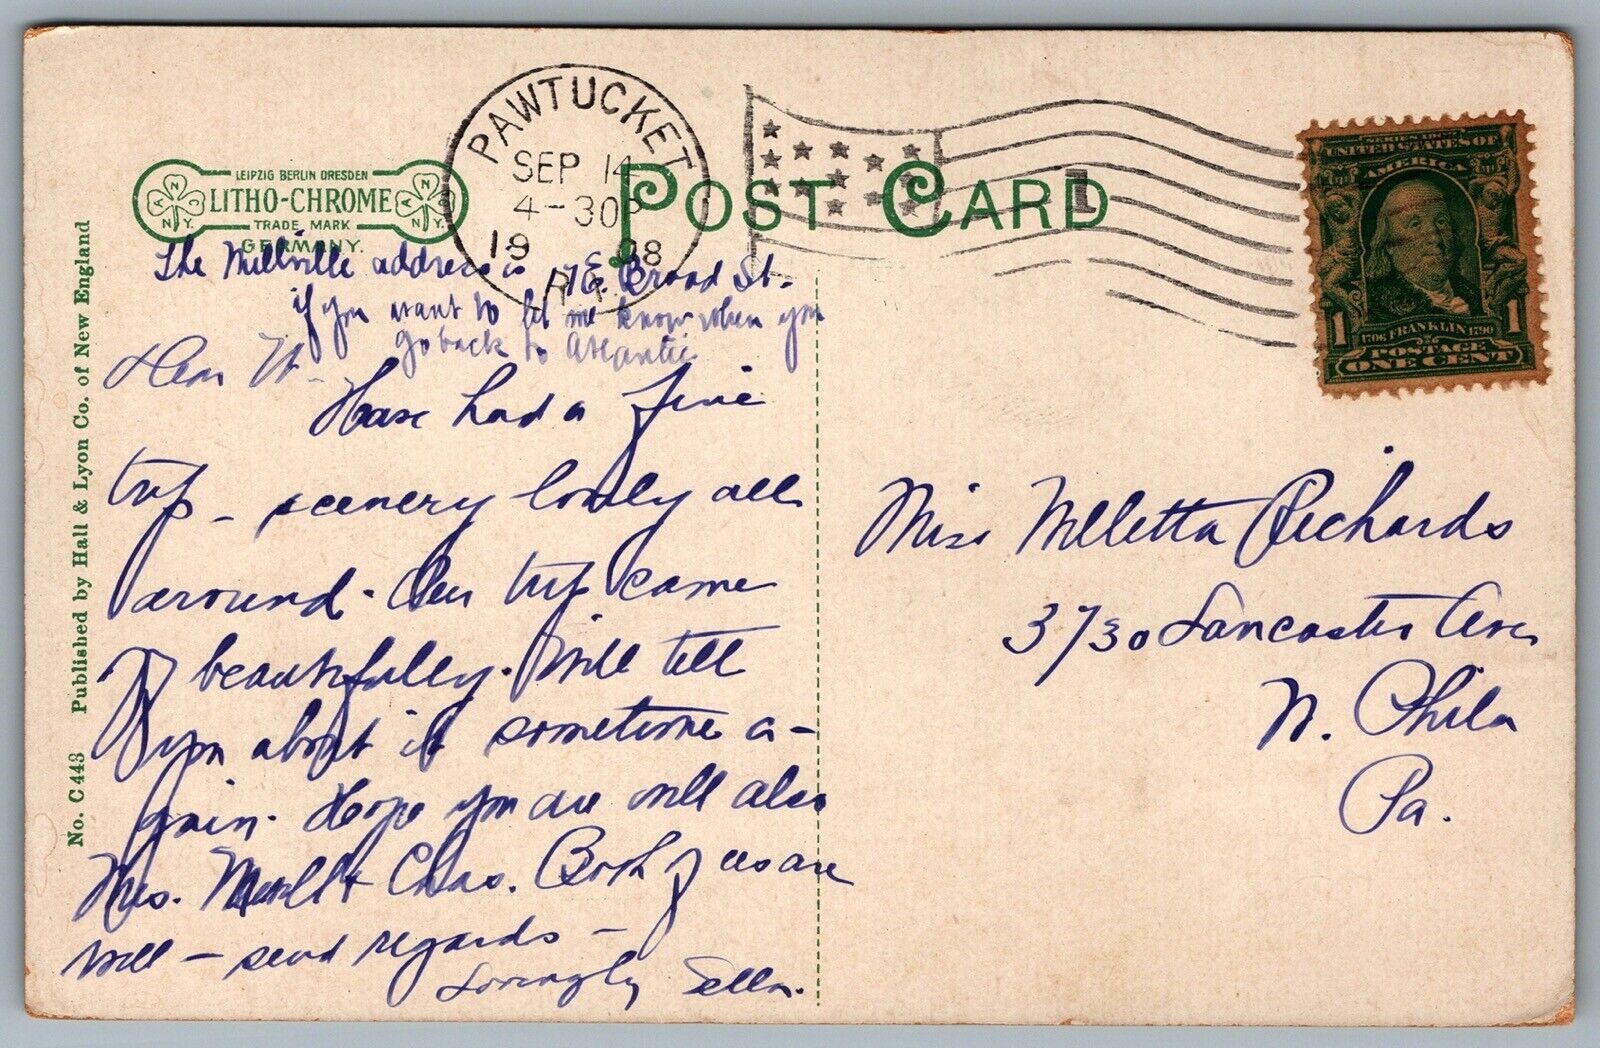 No. C 443 Published by Hall & Lyon Co. of New England
LEIPZIG BERLIN DRESDEN
LITHO-CHROME
TRADE MARK
GERMANY.
PAWTUCKET
SEP 14
4-30P
1908
R.I.
POST CARD
1
UNITED STATES OF
AMERICA
1 FRANKLIN 1
1706 1790
POSTAGE
ONE CENT
The Millville address is 17 E. Broad St.
if you want to let me know when you
go back to Atlantic
Dear W-
Have had a fine
trip - scenery lovely all
around. Our trip came
off beautifully. Will tell
you about it sometime a-
gain. Hope you are well also
Mrs. & Chas. Both of us are
well - send regards -
LovinglyElla.
Miss Willetta Richards
3730 Lancaster Ave
W. Phila
Pa.